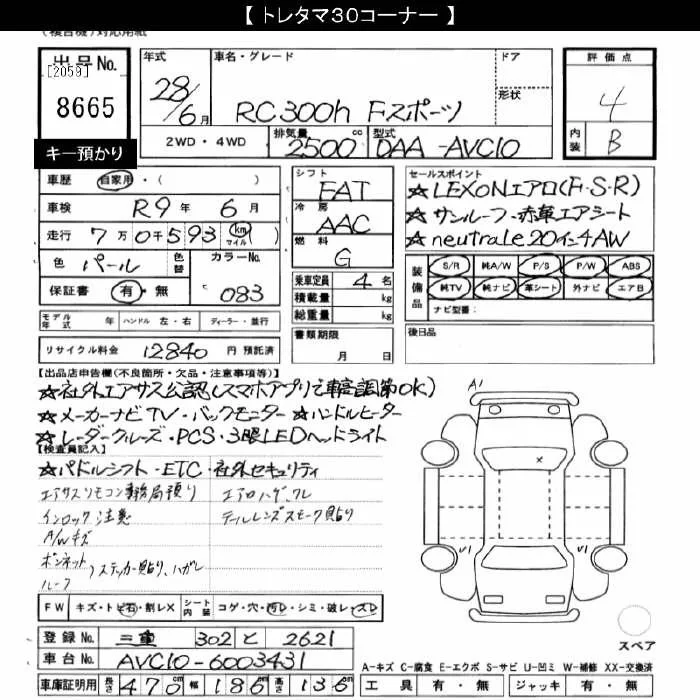 【 トレタマ30コーナー 】
(複合機)対応用紙
出品No.
[2059]
8665
キー預かり
年式 28/6月
車名・グレード RC300h Fスポーツ
ドア
形状
評価点 4
内装 B
2WD・4WD 排気量 2500 cc 型式 DAA-AVC10
車歴 自家用・( )
車検 R9年 6月
走行 7万0千593 (km マイル)
色 パール 色替 カラーNo. 083
保証書 有・無
シフト FAT
冷房 AAC
燃料 G
乗車定員 4名
積載量 kg
総重量 kg
書類期限
月 日
セールスポイント
☆LEXONエアロ(F・S・R)
☆サンルーフ・赤革エアシート
☆neutrale20インチAW
装備品 S/R 純A/W P/S P/W ABS
純TV 純ナビ 革シート 外ナビ エアB
ナビ型番:
モデル年式 年 ハンドル 左・右 ディーラー・並行
後日品
リサイクル料金 12840 円 預託済
【出品店申告欄(不良箇所・欠品・注意事項等)】
☆社外エアサス公認(スマホアプリで車高調節OK)
☆メーカーナビTV・バックモニター ☆ハンドルヒーター
☆レーダークルーズ・PCS・3眼LEDヘッドライト
【検査員記入】
☆パドルシフト・ETC・社外セキュリティ
エアサスリモコン事務局預り エアロハゲ、ワレ
インロック注意 テールレンズスモーク貼り
A/Wキズ
ボンネット
ルーフ 〉ステッカー貼り、ハガレ
A1
×
V1 V1
スペア
FW キズ・トビ石・割レX シート内装 コゲ・穴・汚レ・シミ・破レ・スレ
登録No. 三重 302 と 2621
車台No. AVC10-6003431
車庫証明用 長さ 470 cm 幅 186 cm 高さ 136 cm
A-キズ C-腐食 E-エクボ S-サビ U-凹ミ W-補修 XX-交換済
工具 有・無 ジャッキ 有・無